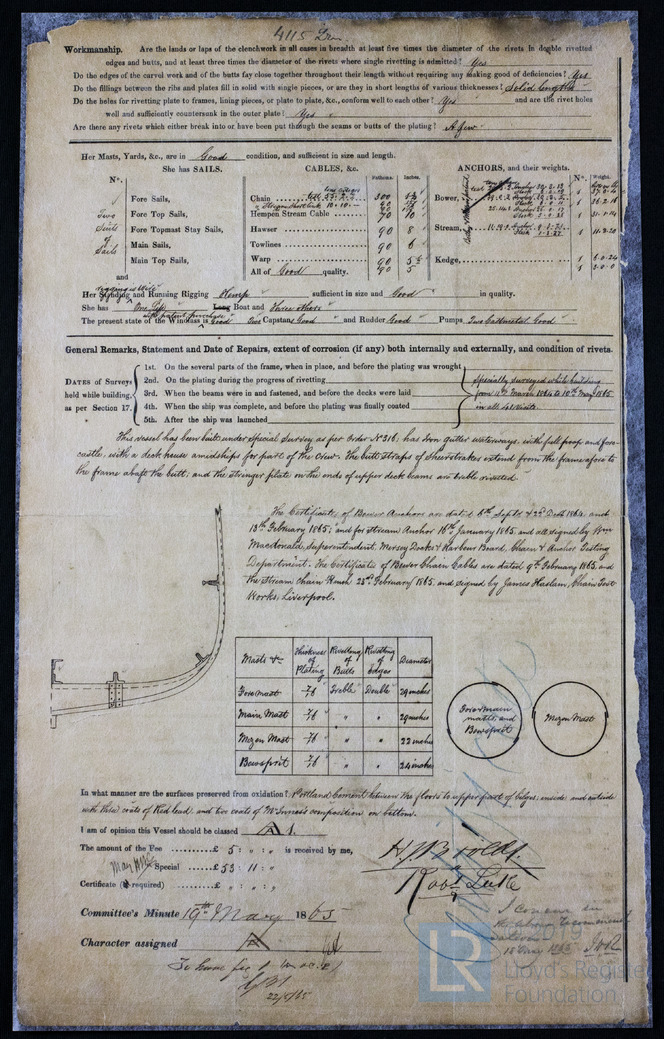 4115 Iron
Workmanship. Are the lands or laps of the clenchwork in all cases in breadth at least five times the diameter of the rivets in double rivetted
edges and butts, and at least three times the diameter of the rivets where single rivetting is admitted? Yes
Do the edges of the carvel work and of the butts fay close together throughout their length without requiring any making good of deficiencies? Yes
Do the fillings between the ribs and plates fill in solid with single pieces, or are they in short lengths of various thicknesses? Solid lengths
Do the holes for rivetting plate to frames, lining pieces, or plate to plate, &c., conform well to each other? Yes and are the rivet holes
well and sufficiently countersunk in the outer plate? Yes
Are there any rivets which either break into or have been put through the seams or butts of the plating? A few
Her Masts, Yards, &c., are in Good condition, and sufficient in size and length.
She has SAILS. CABLES, &c. ANCHORS, and their weights.
N°. Fathoms. Inches. N°. Weight.
Fore Sails, Chain 300 Bower,
Two Fore Top Sails, Hempen Stream Cable 70 10
Suits Fore Topmast Stay Sails, Hawser 90 8 Stream,
of Main Sails, Towlines 90 6
Sails Main Top Sails, Warp 90 Kedge,
and All of Good quality. 90 5
Her Standing and Running Rigging Hemp sufficient in size and Good in quality.
She has One Life Long Boat and Three others
The present state of the Windlass is Good Two Capstans Good and Rudder Good Pumps Two Gutmetal Good
General Remarks, Statement and Date of Repairs, extent of corrosion (if any) both internally and externally, and condition of rivets.
DATES of Surveys held while building, as per Section 17.
1st. On the several parts of the frame, when in place, and before the plating was wrought
2nd. On the plating during the progress of rivetting
3rd. When the beams were in and fastened, and before the decks were laid
4th. When the ship was complete, and before the plating was finally coated
5th. After the ship was launched
Specially surveyed while building
from 11th March 1864 to 10th May 1865
in all 80 visits.
This vessel has been built under special survey as per Order N°316, has Iron gutter waterways, with full poop and fore-
castle, with a deck house amidships for part of the crew. The butt straps of Sheerstrakes extend from the frame afore to
the frame abaft the butt, and the stringer plate on the ends of upper deck beams are treble rivetted.
The Certificates of Bower Anchors are dated 6th Septr & 23d Decr 1864, and
13th February 1865; and for stream Anchor 16th January 1865, and all signed by Wm
Macdonald, Superintendent, Mersey Docks & Harbour Board, Chain & Anchor Testing
Department. The Certificates of Bower Chain Cables are dated 9th February 1865, and
the stream chain ½ inch 22nd February 1865, and signed by James Haslam, Chain Test
Works, Liverpool.
Masts &c Thickness of Plating Rivetting of Butts Rivetting of Edges Diameter
Foremast 7/16 Treble Double 29 inches
Main Mast 7/16 " " 29 inches
Mizen Mast 7/16 " " 22 inches
Bowsprit 7/16 " " 24 inches
Fore & main masts, and Bowsprit
Mizen Mast
In what manner are the surfaces preserved from oxidation? Portland Cement between the floors to upper part of bilges; inside and outside
with three coats of Red lead, and two coats of McInness's composition on bottom.
I am of opinion this Vessel should be classed A 1.
The amount of the Fee ......£ 5 : " : " is received by me,
Special ......£ 53 : 11 : "
Certificate (if required) ......£ " : " : "
Robt Luke
Committee's Minute 19th May 1865
Character assigned A
I concur in
18 May 1865
22/5/65
LR
Heritage
Lloyd's Register
Foundation